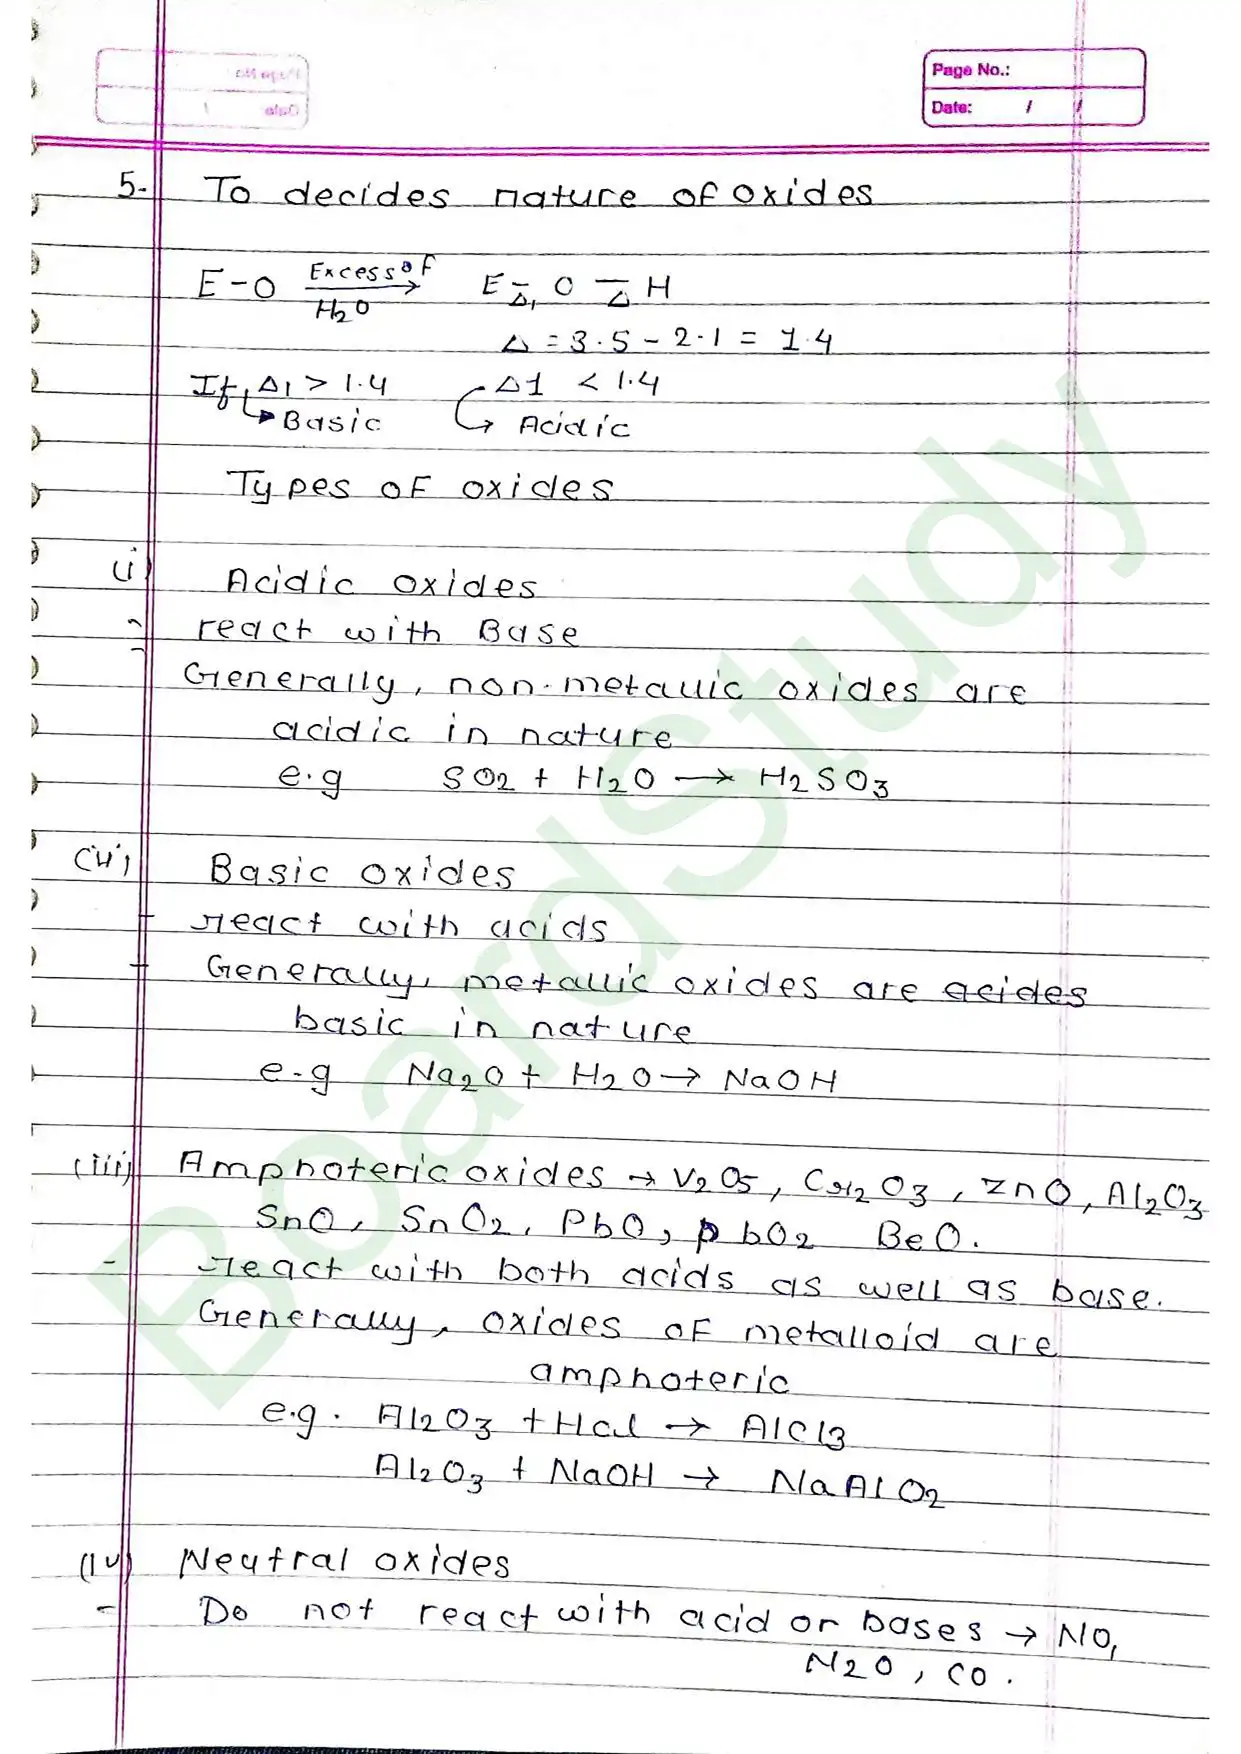 Page No.:
Date: / /
5. To decides nature of oxides
E-O Excess of H2O → E -Δ1 O -Δ H
Δ = 3.5 - 2.1 = 1.4
If, Δ1 > 1.4 Δ1 < 1.4
↳ Basic ↳ Acidic
Types of oxides
(i) Acidic oxides
- react with Base
- Generally, non-metallic oxides are
acidic in nature
e.g SO2 + H2O → H2SO3
(ii) Basic oxides
- react with acids
- Generally, metallic oxides are acides
basic in nature
e-g Na2O + H2O → NaOH
(iii) Amphoteric oxides → V2O5, Cr2O3, ZnO, Al2O3
SnO, SnO2, PbO, PbO2 BeO.
- react with both acids as well as base.
Generally, oxides of metalloid are
amphoteric
e.g. Al2O3 + Hcl → AlCl3
Al2O3 + NaOH → NaAlO2
(iv) Neutral oxides
- Do not react with acid or bases → NO,
N2O, CO.
BoardStudy